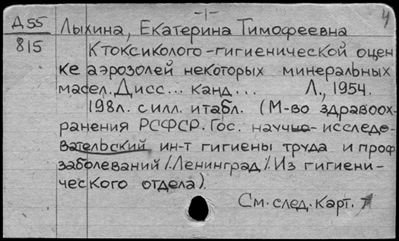 -1-
4
Д55 Лыхина, Екатерина Тимофеевна
815 К токсиколого-гигиенической оцен
ке аэрозолей некоторых минеральных
масел. Дисс... канд... Л., 1954.
198л. с илл. и табл. (М-во здравоох-
ранения РСФСР. Гос. научно-исследо-
вательский ин-т гигиены труда и проф
заболеваний /Ленинград/. Из гигиени-
ческого отдела).
См. след. карт.